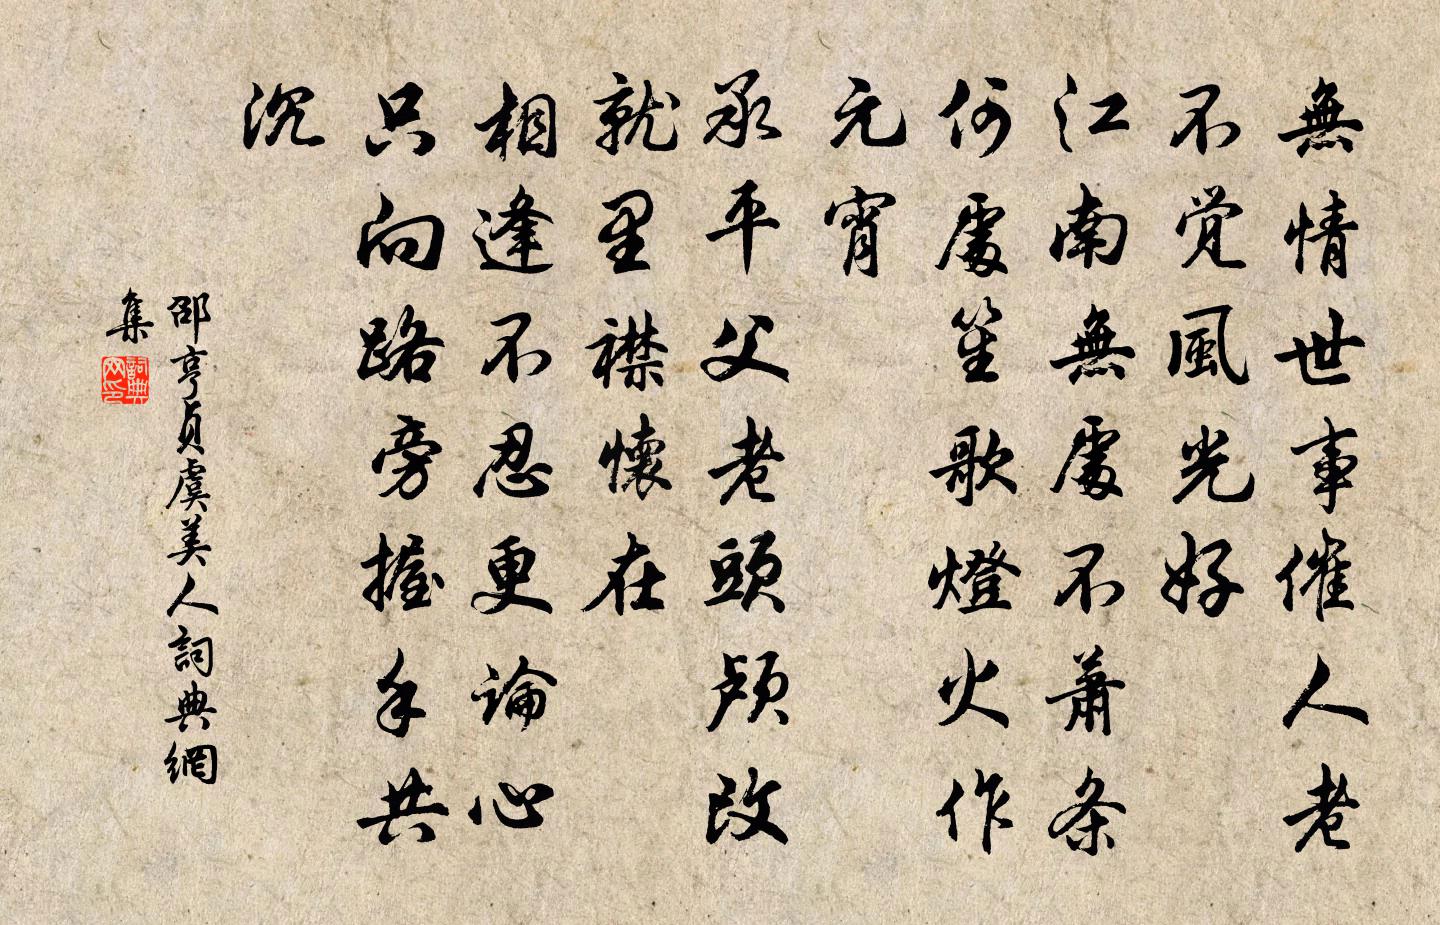 無情世事催人老
不觉風光好
江南無處不蕭条
何處笙歌燈火作
元宵
承平父老頭顱改
就里襟懷在
相逢不忍更論心
只向路旁握手共
沉
邵亨貞虞美人詞典網
集
詞典網印